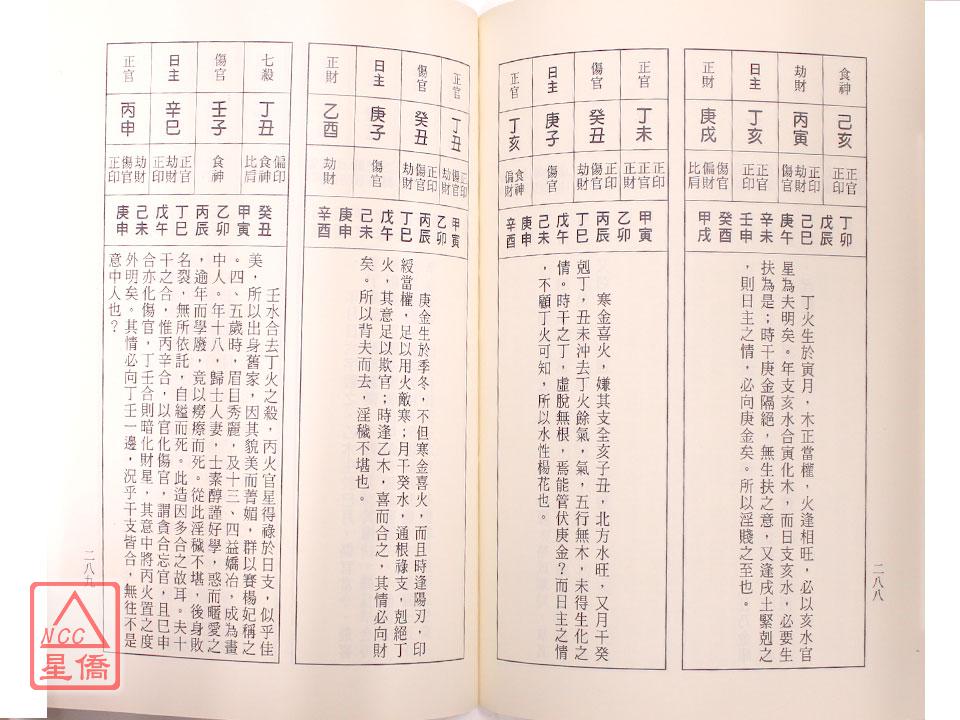 食神
己亥
正官
正印
劫財
丙寅
傷官
劫財
正印
日主
丁亥
正官
正印
正財
庚戌
傷官
偏財
比肩
丁卯
戊辰
己巳
庚午
辛未
壬申
癸酉
甲戌
丁火生於寅月,木正當權,火逢相旺,必以亥水官
星為夫明矣。年支亥水合寅化木,而日支亥水,必要生
扶為是;時干庚金隔絕,無生扶之意,又逢戌土緊剋之
,則日主之情,必向庚金矣。所以淫賤之至也。
二八八
正官
丁未
正印
正官
正財
傷官
癸丑
正印
傷官
劫財
日主
庚子
傷官
正官
丁亥
食神
偏財
甲寅
乙卯
丙辰
丁巳
戊午
己未
庚申
辛酉
寒金喜火,嫌其支全亥子丑,北方水旺,又月干癸
剋丁,丑未沖去丁火餘氣,氣,五行無木,未得生化之
情。時干之丁,虛脫無根,焉能管伏庚金?而日主之情
,不顧丁火可知,所以水性楊花也。
正官
丁丑
正印
傷官
劫財
傷官
癸丑
正印
傷官
劫財
日主
庚子
傷官
正財
乙酉
劫財
甲寅
乙卯
丙辰
丁巳
戊午
己未
庚申
辛酉
庚金生於季冬,不但寒金喜火,而且時逢陽刃,印
綬當權,足以用火敵寒;月干癸水,通根祿支,剋絕丁
火,其意足以欺官;時逢乙木,喜而合之,其情必向財
矣。所以背夫而去,淫穢不堪也。
七殺
丁丑
偏印
食神
比肩
傷官
壬子
食神
日主
辛巳
正官
劫財
正印
正官
丙申
劫財
傷官
正印
癸丑
甲寅
乙卯
丙辰
丁巳
戊午
己未
庚申
壬水合去丁火之殺,丙火官星得祿於日支,似乎佳
美,所以出身舊家,因其貌美而菁媚,群以賽楊妃稱之
。四、五歲時,眉目秀麗,及十三、四益嬌冶,成為畫
中人。年十八,歸士人妻,士素醇謹好學,惑而暱愛之
,逾年而學廢,竟以癆瘵而死。從此淫穢不堪,後身敗
名裂,無所依託,自縊而死。此造因多合之故耳。夫十
干之合,惟丙辛合,以官化傷官,謂貪合忘官,且巳申
合亦化傷官,丁壬合則暗化財星,其意中將丙火置之度
外明矣。其情必向丁壬一邊,況乎干支皆合,無往不是
意中人也?
二八九
NCC
星僑